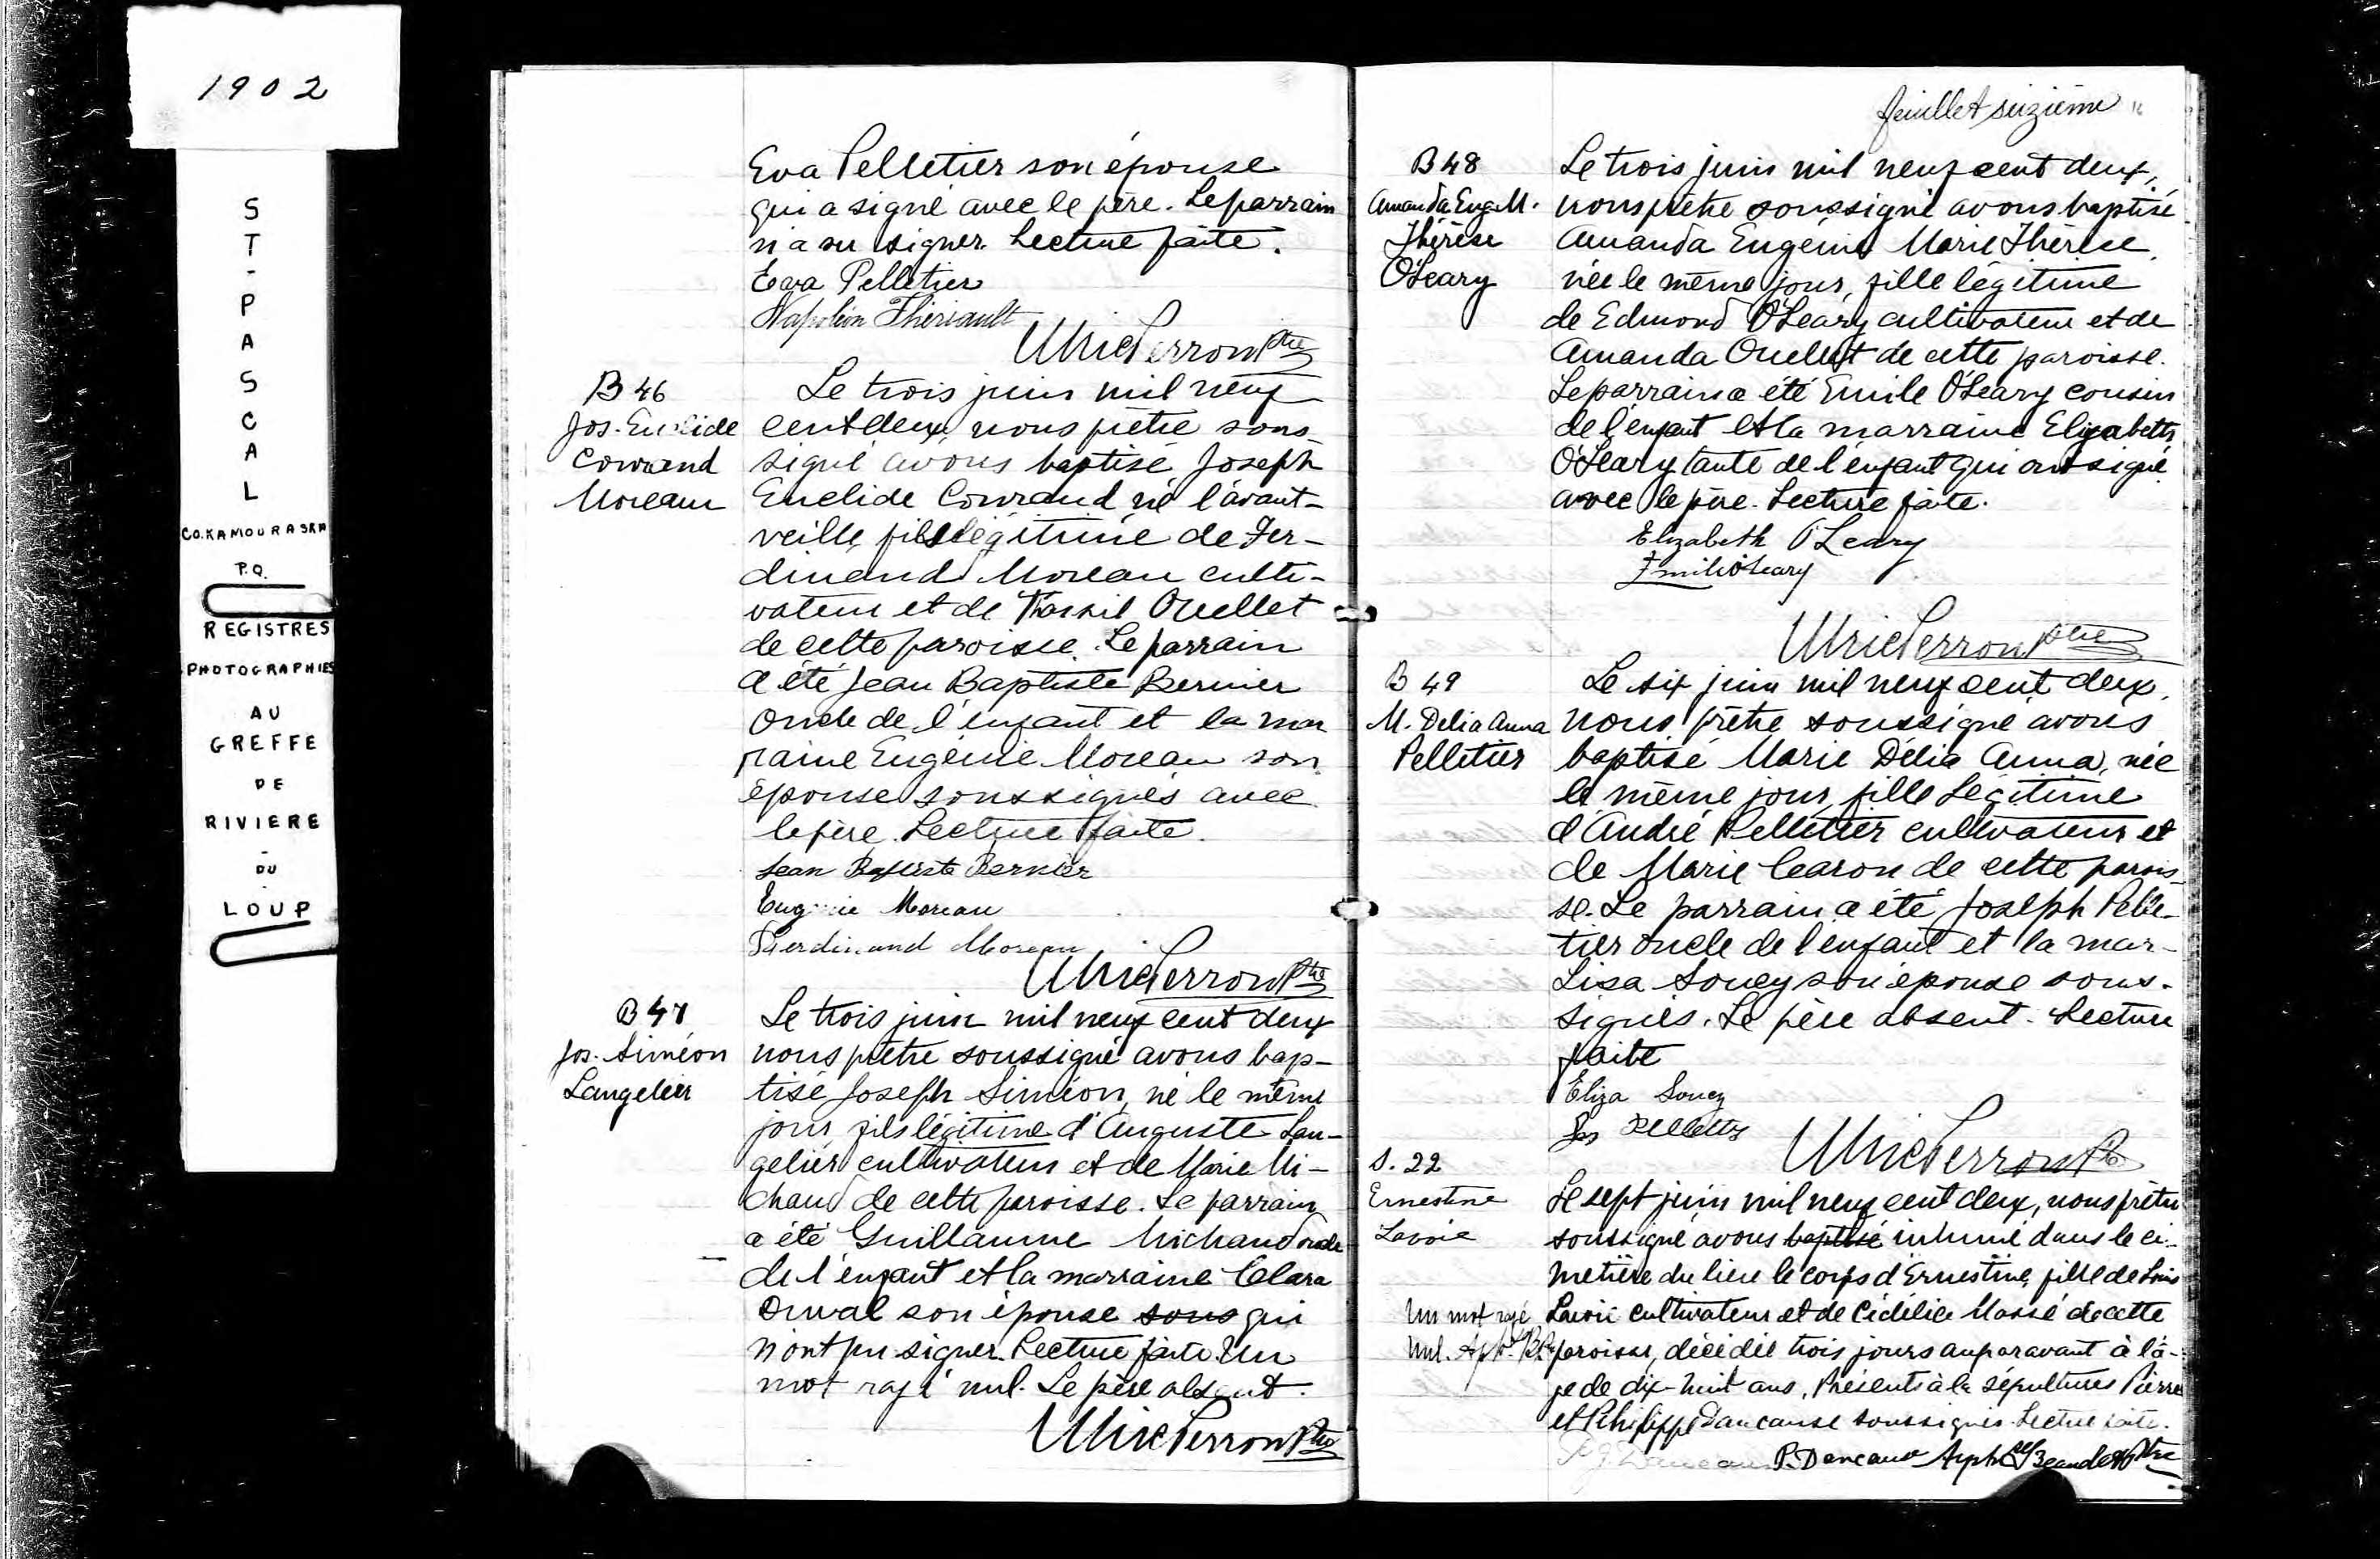 1902
ST-PASCAL
CO. KAMOURASKA
P.Q.
REGISTRES
PHOTOGRAPHIES
AU
GREFFE
DE
RIVIERE
-
DU
-
LOUP
Eva Pelletier son épouse
qui a signé avec le père. Le parrain
n'a su signer. Lecture faite.
Eva Pelletier
Napoléon Thériault
Ulric Perron Ptre
B 46
Jos. Euclide
Conrand
Moreau
Le trois juin mil neuf
cent deux, nous prêtre sous-
signé avons baptisé Joseph
Euclide Conrand né l'avant-
veille, fils légitime de Fer-
dinand Moreau culti-
vateur et de Ouellet
de cette paroisse. Le parrain
a été Jean Baptiste Bernier
oncle de l'enfant et la mar
raine Eugénie Moreau son
épouse soussignés avec
le père. Lecture faite.
Jean Baptiste Bernier
Eugenie Moreau
Ferdinand Moreau
Ulric Perron Ptre
B 47
Jos. Siméon
Langelier
Le trois juin mil neuf cent deux
nous prêtre soussigné avons bap-
tisé Joseph Siméon, né le même
jour, fils légitime d'Auguste Lan-
gelier cultivateur et de Marie Mi-
chaud de cette paroisse. Le parrain
a été Guillaume Michaud oncle
de l'enfant et la marraine Clara
son épouse sous qui
n'ont pu signer. Lecture faite. Un
mot rayé nul. Le père absent.
Ulric Perron Ptre
feuillet seizième 16
B 48
Amanda Eug. M.
Thérèse
O'Leary
Le trois juin mil neuf cent deux,
nous prêtre soussigné avons baptisé
Amanda Eugénie Marie Thérèse,
née le même jour, fille légitime
de Edmond O'Leary cultivateur et de
Amanda Ouellet de cette paroisse.
Le parrain a été Emile O'Leary cousin
de l'enfant et la marraine Elizabeth
O'Leary tante de l'enfant qui ont signé
avec le père. Lecture faite.
Elizabeth O'Leary
Emile O'Leary
Ulric Perron Ptre
B 49
M. Delia Anna
Pelletier
Le six juin mil neuf cent deux,
nous prêtre soussigné avons
baptisé Marie Délia Anna, née
le même jour, fille légitime
d'André Pelletier cultivateur et
de Marie Caron de cette parois-
se. Le parrain a été Joseph Pelle-
tier oncle de l'enfant et la mar-
Lisa Soucy son épouse sous-
signés. Le père absent. Lecture
faite
Eliza Soucy
Jos Pelletier
Ulric Perron Ptre
S. 22
Ernestine
Lavoie
Le sept juin mil neuf cent deux, nous prêtre
soussigné avons baptisé inhumé dans le ci-
metière du lieu le corps d'Ernestine, fille de Louis
Lavoie cultivateur et de Cédélice Massé de cette
paroisse, décédée trois jours auparavant à l'â-
ge de dix-huit ans. Présents à la sépulture Pierre
et Philippe Dancause soussignés. Lecture faite.
Un mot rayé
nul.
P. Dancause